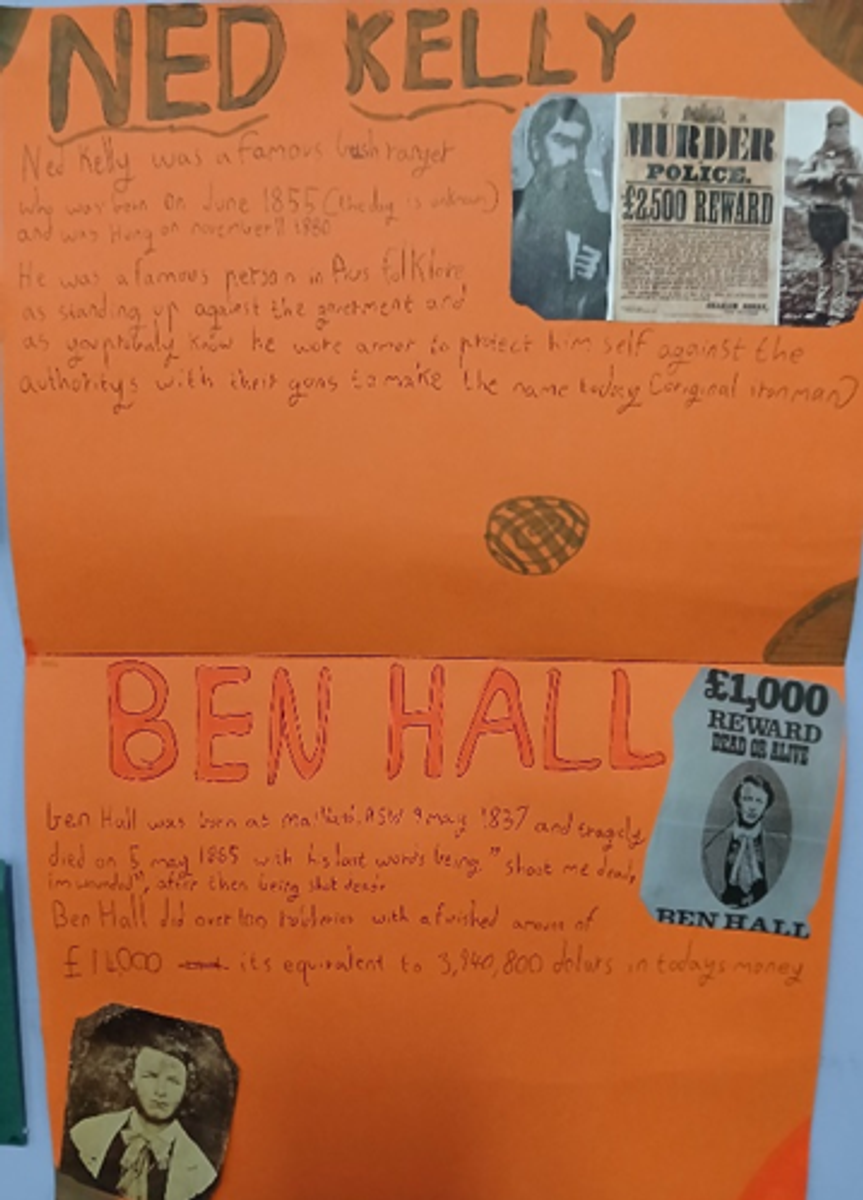 NED KELLY
Ned Kelly was a famous bushranger
who was born on June 1855 (the day is unknown)
and was Hung on november 11 1880
He was a famous person in Aus folklore
as standing up against the goverment and
as you probaly know he wore armor to protect him self against the
authoritys with their guns to make the name today (original iron man)
MURDER
POLICE.
£2500 REWARD
BEN HALL
£1,000
REWARD
DEAD OR ALIVE
BEN HALL
ben Hall was born at NSW 9 may 1837 and tragicly
died on 5 may 1865 with his last words being "shoot me dead,
im wounded", after then being shot dead.
Ben Hall did over 100 robberies with a finished amount of
its equivalent to 3,940,800 dolars in todays money